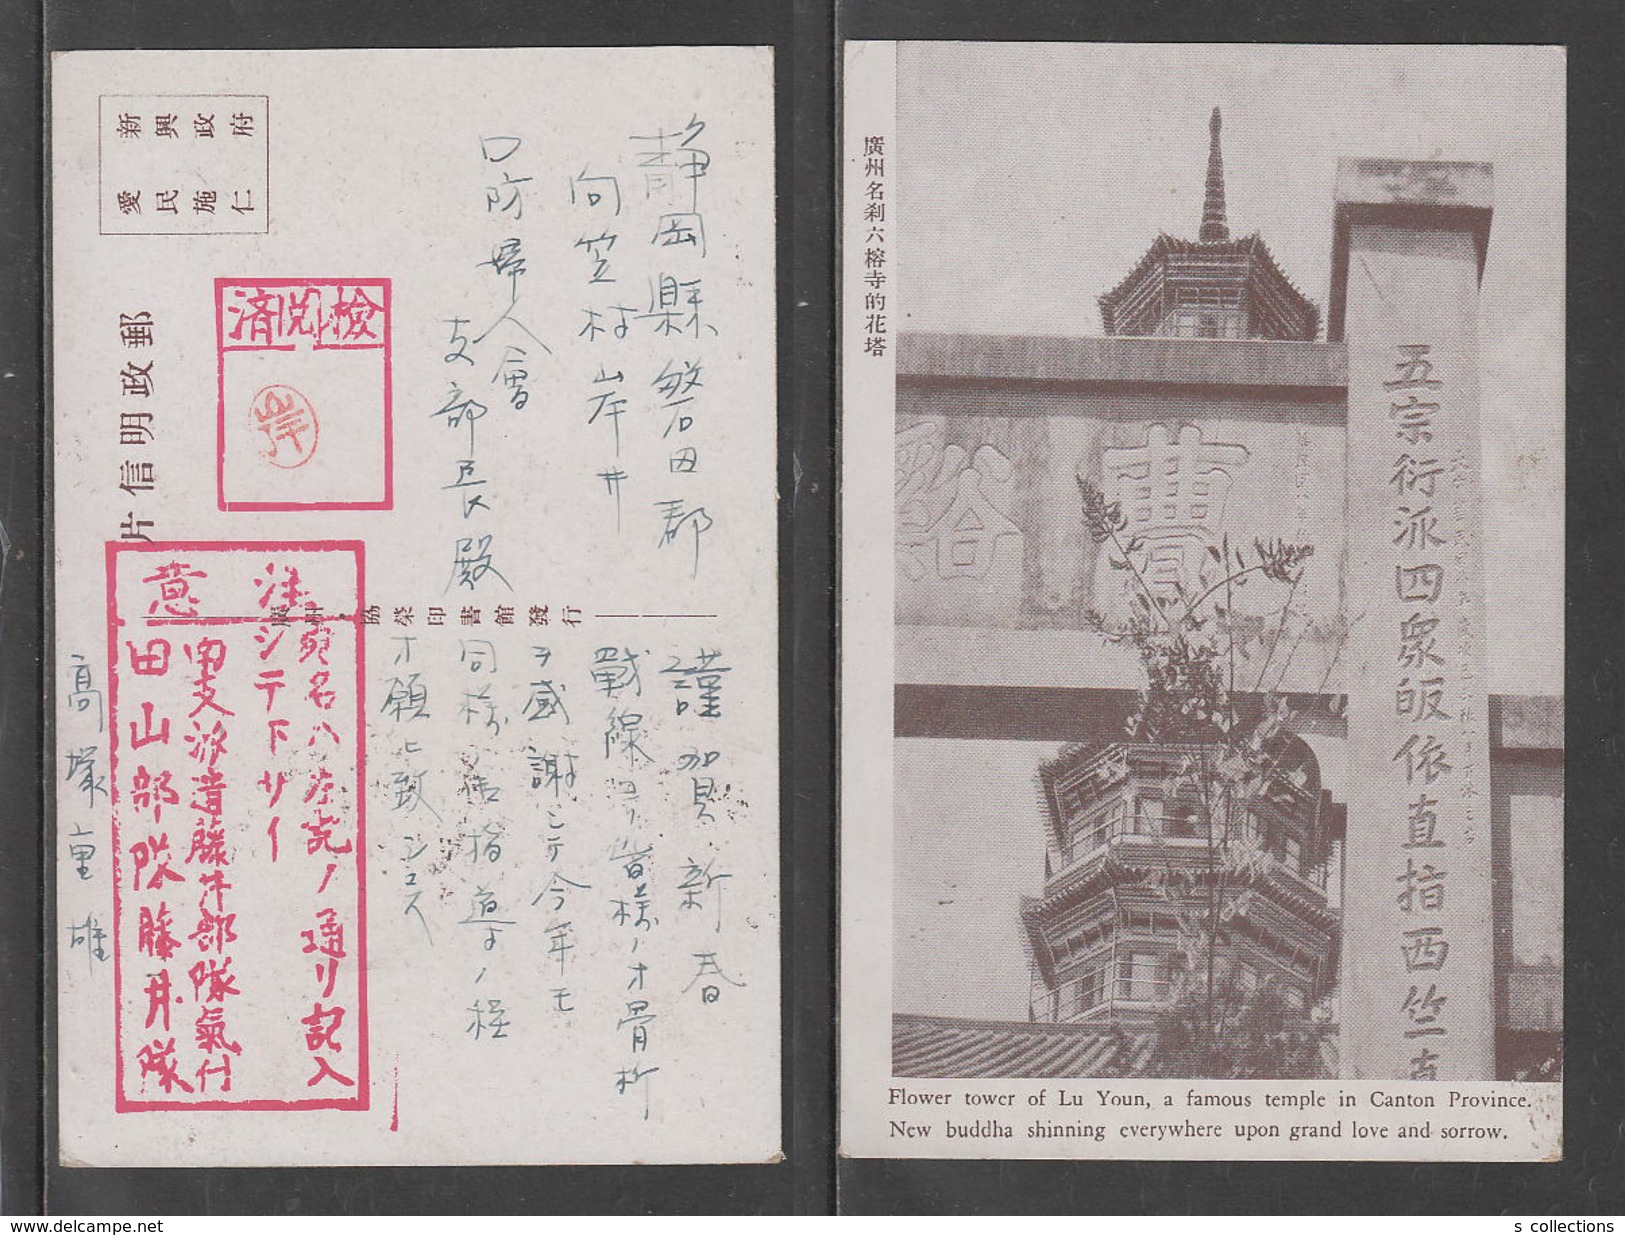 新興政府
愛民施仁
郵政明信片
檢閲済
岸
注意
宛名ハ左記ノ通リ記入
シテ下サイ
南支派遣藤井部隊氣付
田山部隊藤井隊
協榮印書館發行
静岡縣磐田郡
向笠村岩井
口防婦人會
支部長殿
謹賀新春
戰線ヨリ皆様ノオ骨折
ヲ感謝シテ今年モ
同様ノ御指導ノ程
オ願ヒ致シマス
高塚重雄
廣州名刹六榕寺的花塔
五宗衍派四眾皈依直指西竺直
Flower tower of Lu Youn, a famous temple in Canton Province.
New buddha shinning everywhere upon grand love and sorrow.
s collections
www.delcampe.net